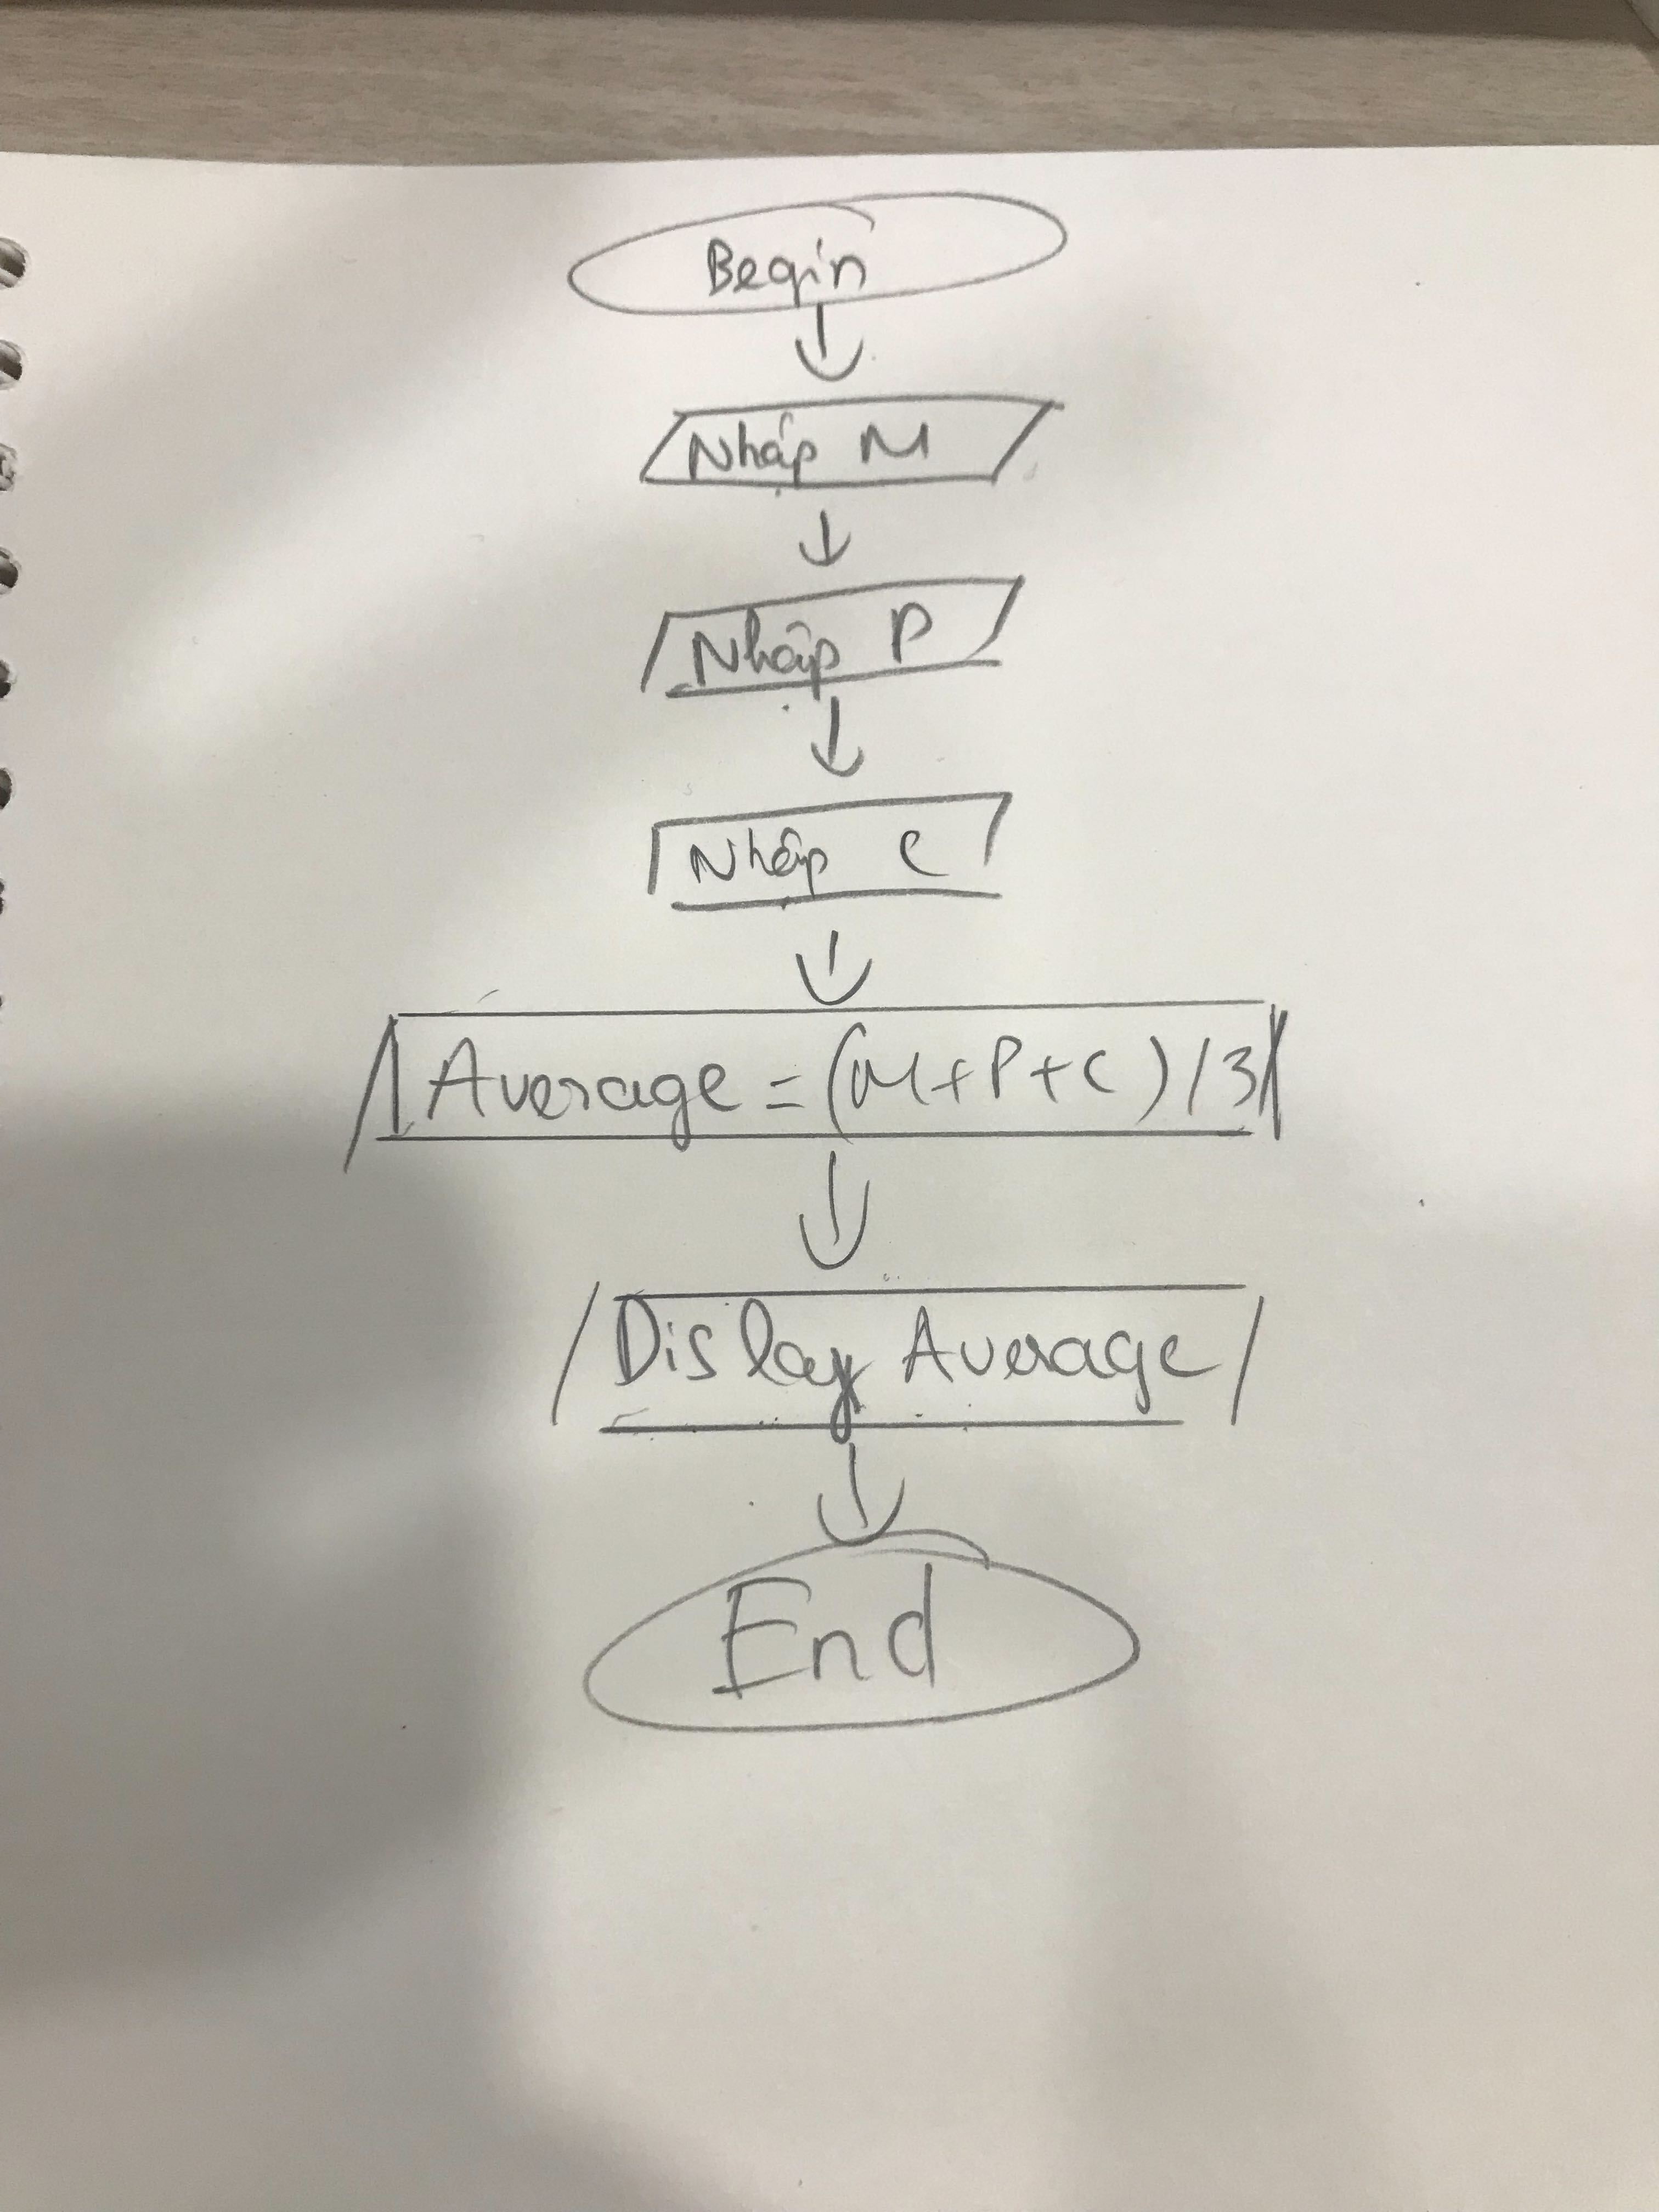 Begin
Nhập M
Nhập P
Nhập C
Average = (M+P+C)/3
Display Average
End